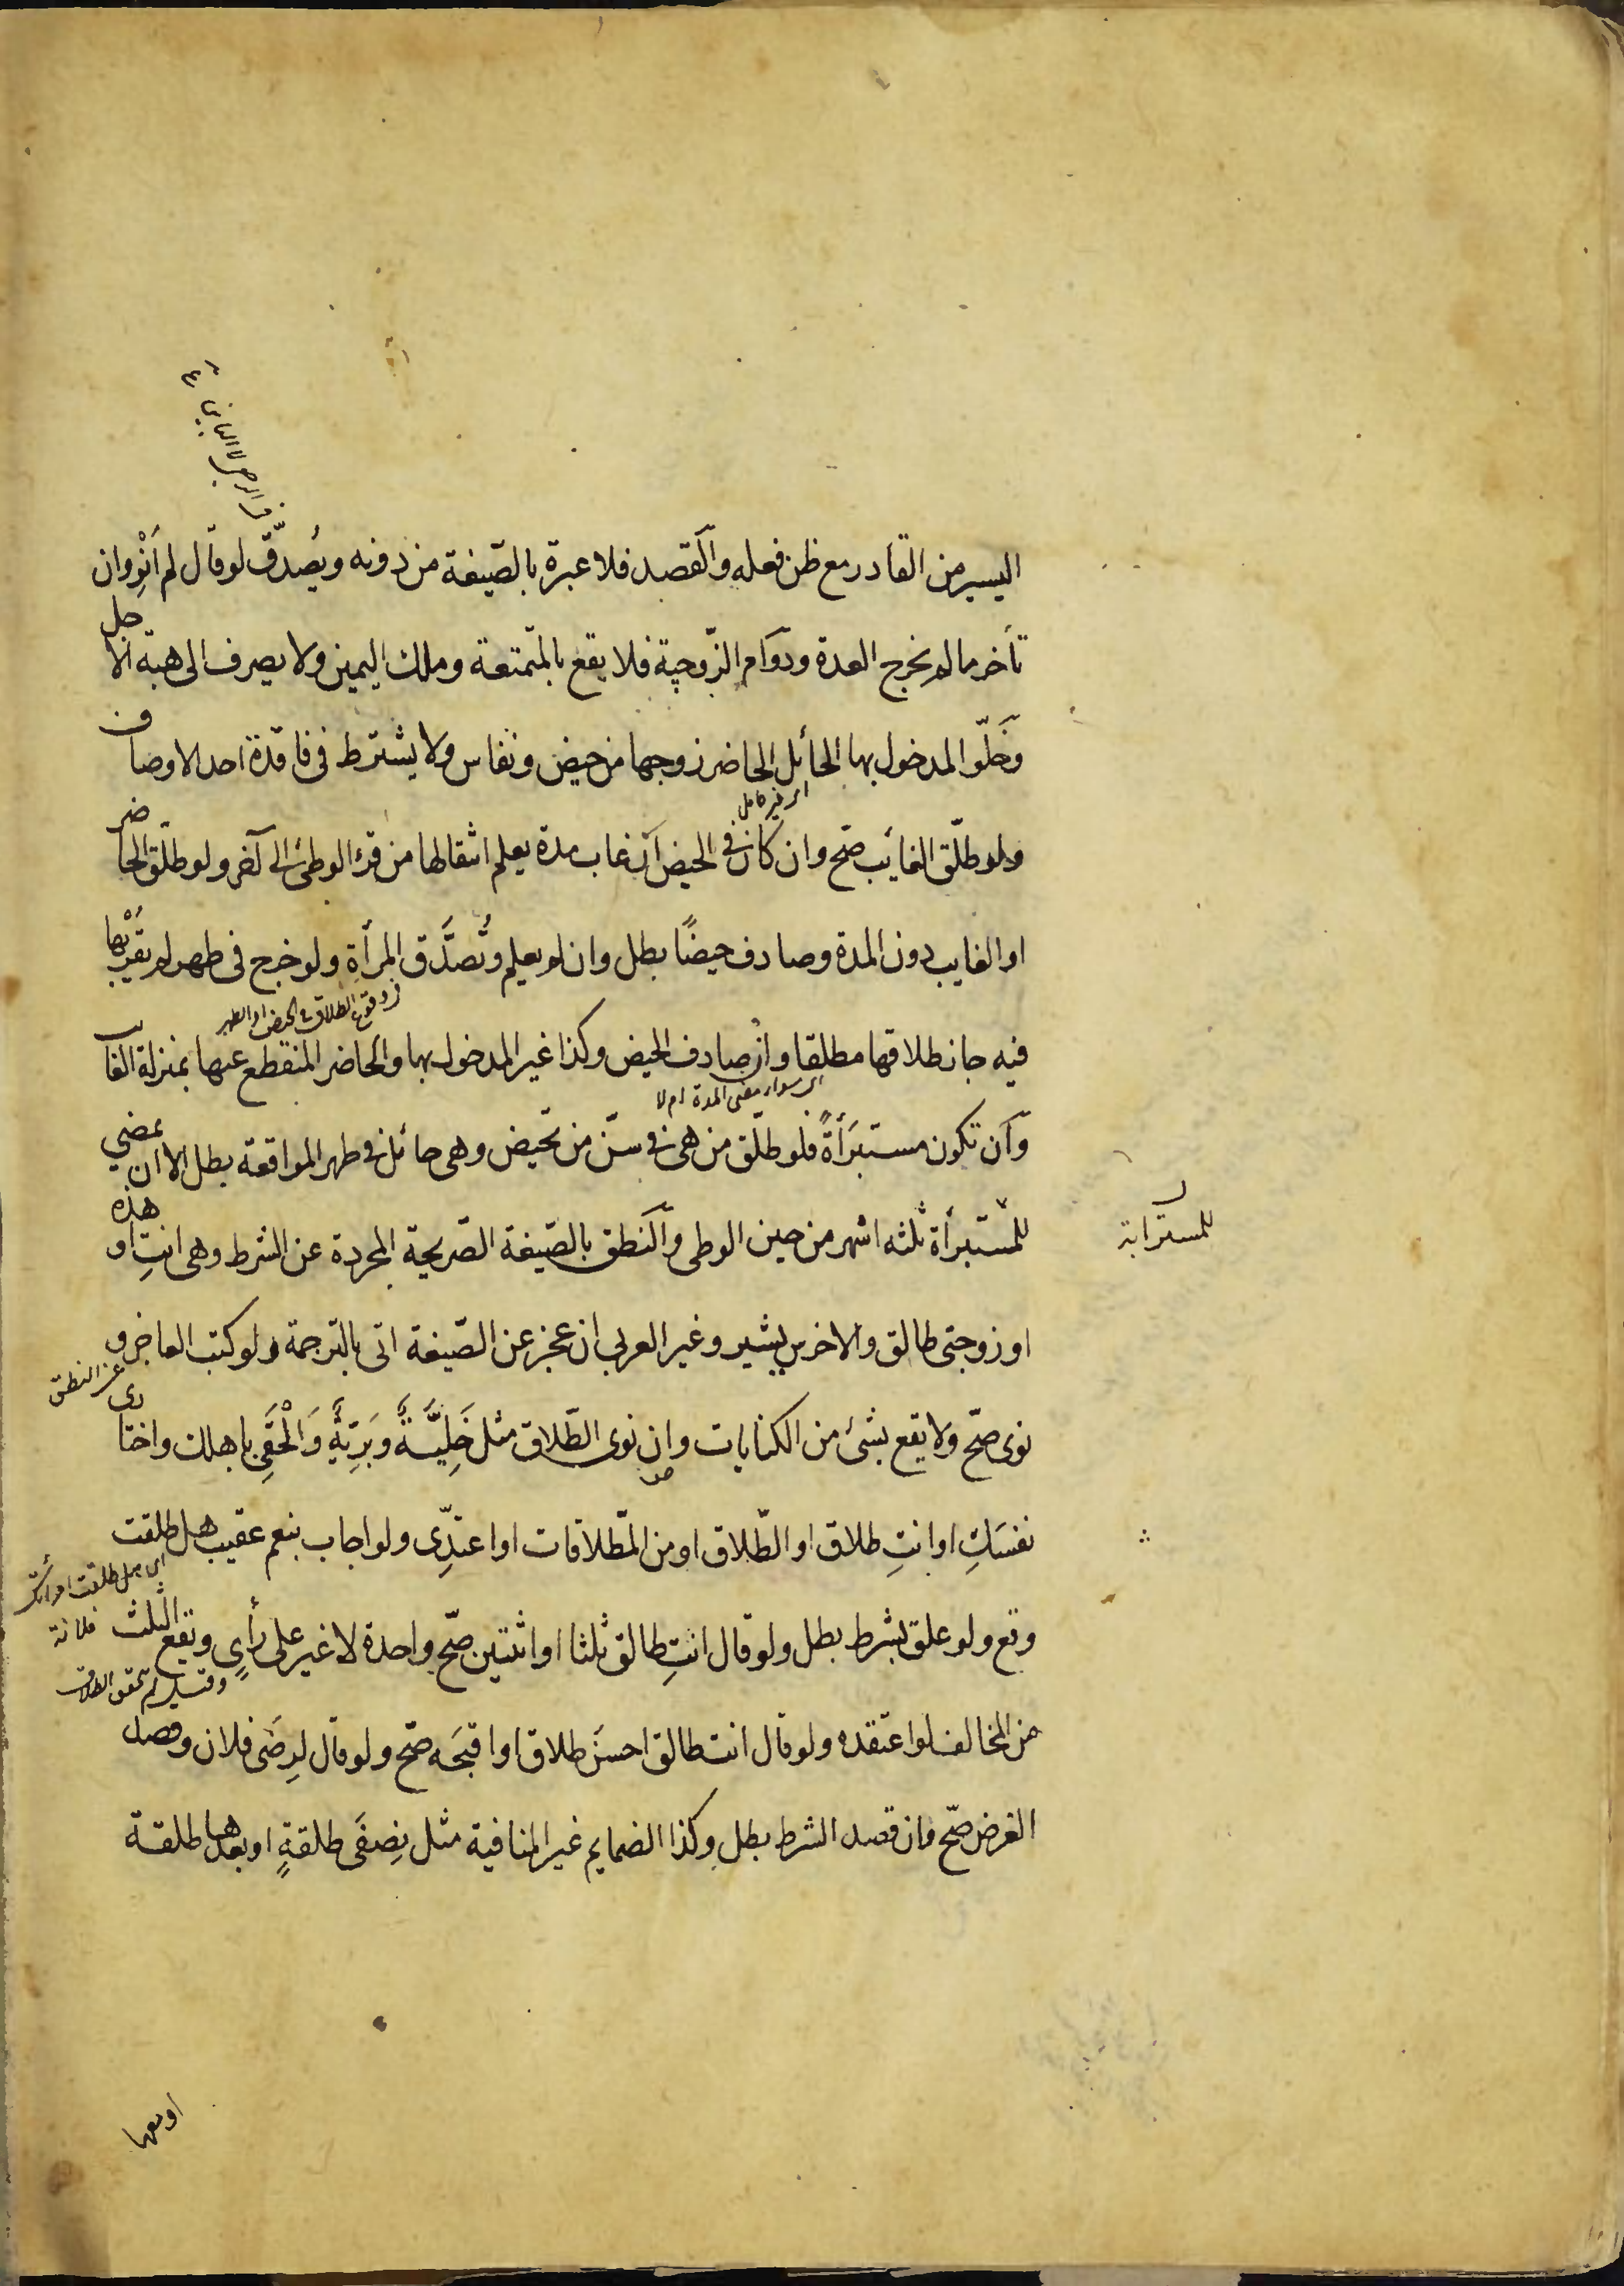 اليسير من القادر مع ظن فعله والقصد فلا عبرة بالصّيغة من دونه ويُصدّق لو قال لم اَنْوِ وان
تأخر ما لم يخرج العدة ودوام الزّوجية فلا يقع بالمتمتعة وملك اليمين ولا يصرف الى هبة الاجل
وخلوّ المدخول بها الحائل الحاضر زوجها من حيض ونفاس ولا يشترط فى فاقدة احد الاوصاف
اى غير حامل
ولو طلّق الغايب صّح وان كان فى الحيض ان غاب مدة يعلم انتقالها من قرء الوطئ الى آخر ولو طلّق الحاضر
او الغايب دون المدة وصادف حيضًا بطل وان لم يعلم وتُصدَّق المرأة ولو خرج فى طهر لم يقرَبْها
فى وقوع الطلاق فى الحيض او الطهر
فيه جاز طلاقها مطلقا وان صادف الحيض وكذا غير المدخول بها والحاضر المنقطع عنها بمنزلة الغايب
اى سواء مضى المدة ام لا
وان تكون مستبرَأةً فلو طلّق من هى فى سنّ من تحيض وهى حائل فى طهر المواقعة بطل الا ان يمضي
للمستبرأة ثلثه اشهر من حين الوطى والنطق بالصّيغة الصّريحة المجردة عن الشرط وهى انتِ او هذه
للمسترابة
او زوجتى طالق والاخرس يشير وغير العربي ان عجز عن الصّيغة اتى بالترجمة ولو كتب العاجز و
عن النطق
نوى صحّ ولا يقع بشئ من الكنايات وان نوى الطّلاق مثل خَلِيَّةً وبَرِيّةً وَالْحَقَي باهلك واختارى
نفسَكِ او انتِ طلاق او الطّلاق او من المّطلاقات او اعتدِّى ولو اجاب بنعم عقيب هل طلقت
اى هل طلقت امرأتك فلانة
وقع ولو علق بشرط بطل ولو قال انتِ طالق ثلثا او اثنتين صّح واحدة لا غير على رأىٍ وتقع الثلث
من المخالف لو اعتقده ولو قال انت طالق احسنَ طلاق او اقبحَه صّح ولو قال لرِضَى فلان وقصد
الغرض صّح فان قصد الشرط بطل وكذا الضمايم غير المنافية مثل نِصفَى طلقةٍ او بعدها طلقة
او معها